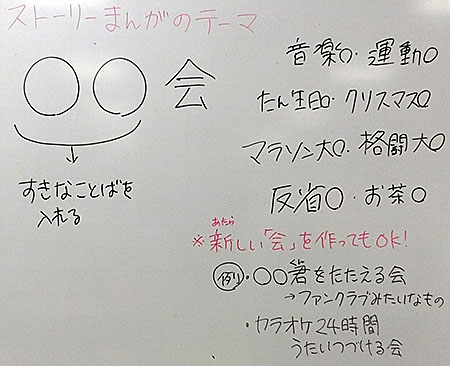 ストーリーまんがのテーマ
○○会
↓
すきなことばを
入れる
音楽○・運動○
たん生日○・クリスマス○
マラソン大○・格闘大○
反省○・お茶○
あたら
※新しい「会」を作ってもOK!
例)・○○箸をたたえる会
→ファンクラブみたいなもの
・カラオケ24時間
うたいつづける会